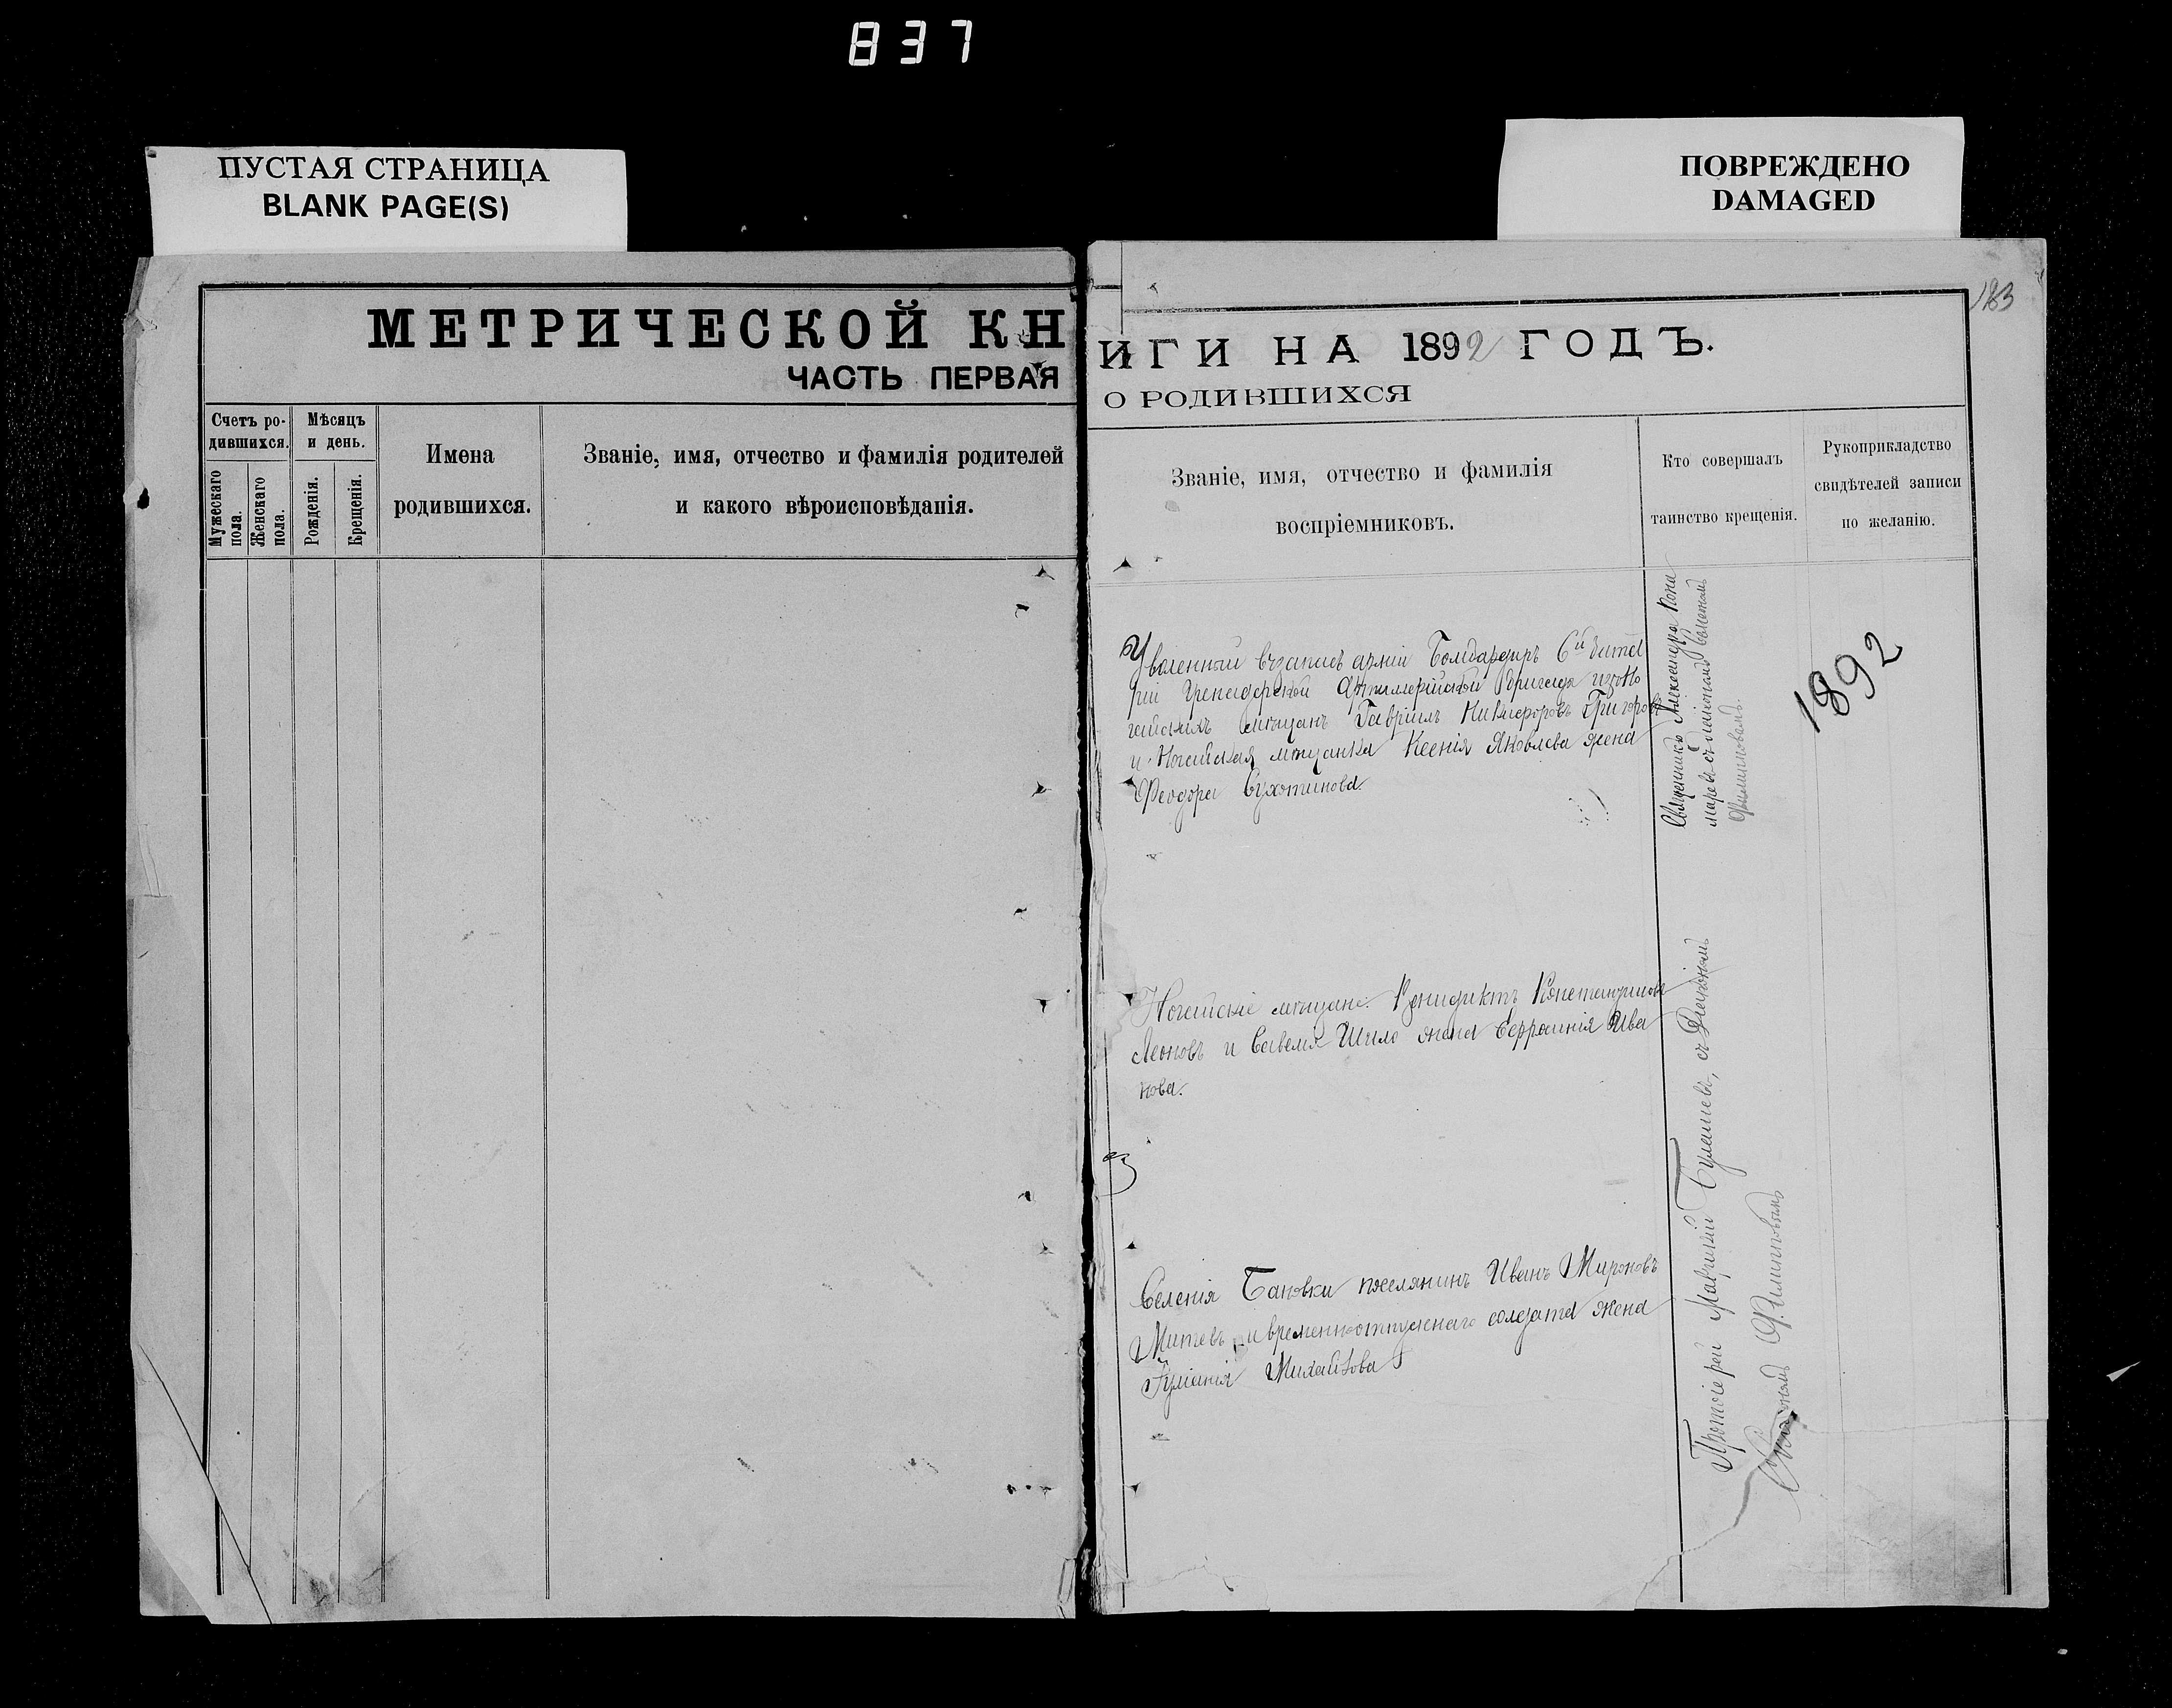 837
ПУСТАЯ СТРАНИЦА
BLANK PAGE(S)
ПОВРЕЖДЕНО
DAMAGED
183
МЕТРИЧЕСКОЙ КН
ЧАСТЬ ПЕРВАЯ
Счетъ ро-
дившихся.
Мужескаго
пола.
Женскаго
пола.
Мѣсяцъ
и день.
Рожденія.
Крещенія.
Имена
родившихся.
Званіе, имя, отчество и фамилія родителей
и какого вѣроисповѣданія.
ИГИ НА 1892 ГОДЪ.
О РОДИВШИХСЯ
Званіе, имя, отчество и фамилія
воспріемниковъ.
Кто совершалъ
таинство крещенія.
Рукоприкладство
свидѣтелей записи
по желанію.
Уволенный въ запасъ арміи Бомбардиръ 6й бата
реи Гренадерской Артиллерійской бригады изъ Но
гайскихъ мѣщанъ Гавріилъ Никифоровъ Григоровъ
и Ногайская мѣщанка Ксенія Яковлева жена
Феодора Сухотинова.
Священникъ Александръ Пона
маревъ съ діакономъ
Филипповымъ.
1892
Ногайскіе мѣщане: Константиновъ
Леоновъ и Савелія Шило жена Евфросинія Ива
нова.
Селенія Бановки поселянинъ Иванъ Мироновъ
Митевъ и временноотпускнаго солдата жена
Іуліанія Михайлова
Протоіерей Маврикій съ Діакономъ
Филипповымъ